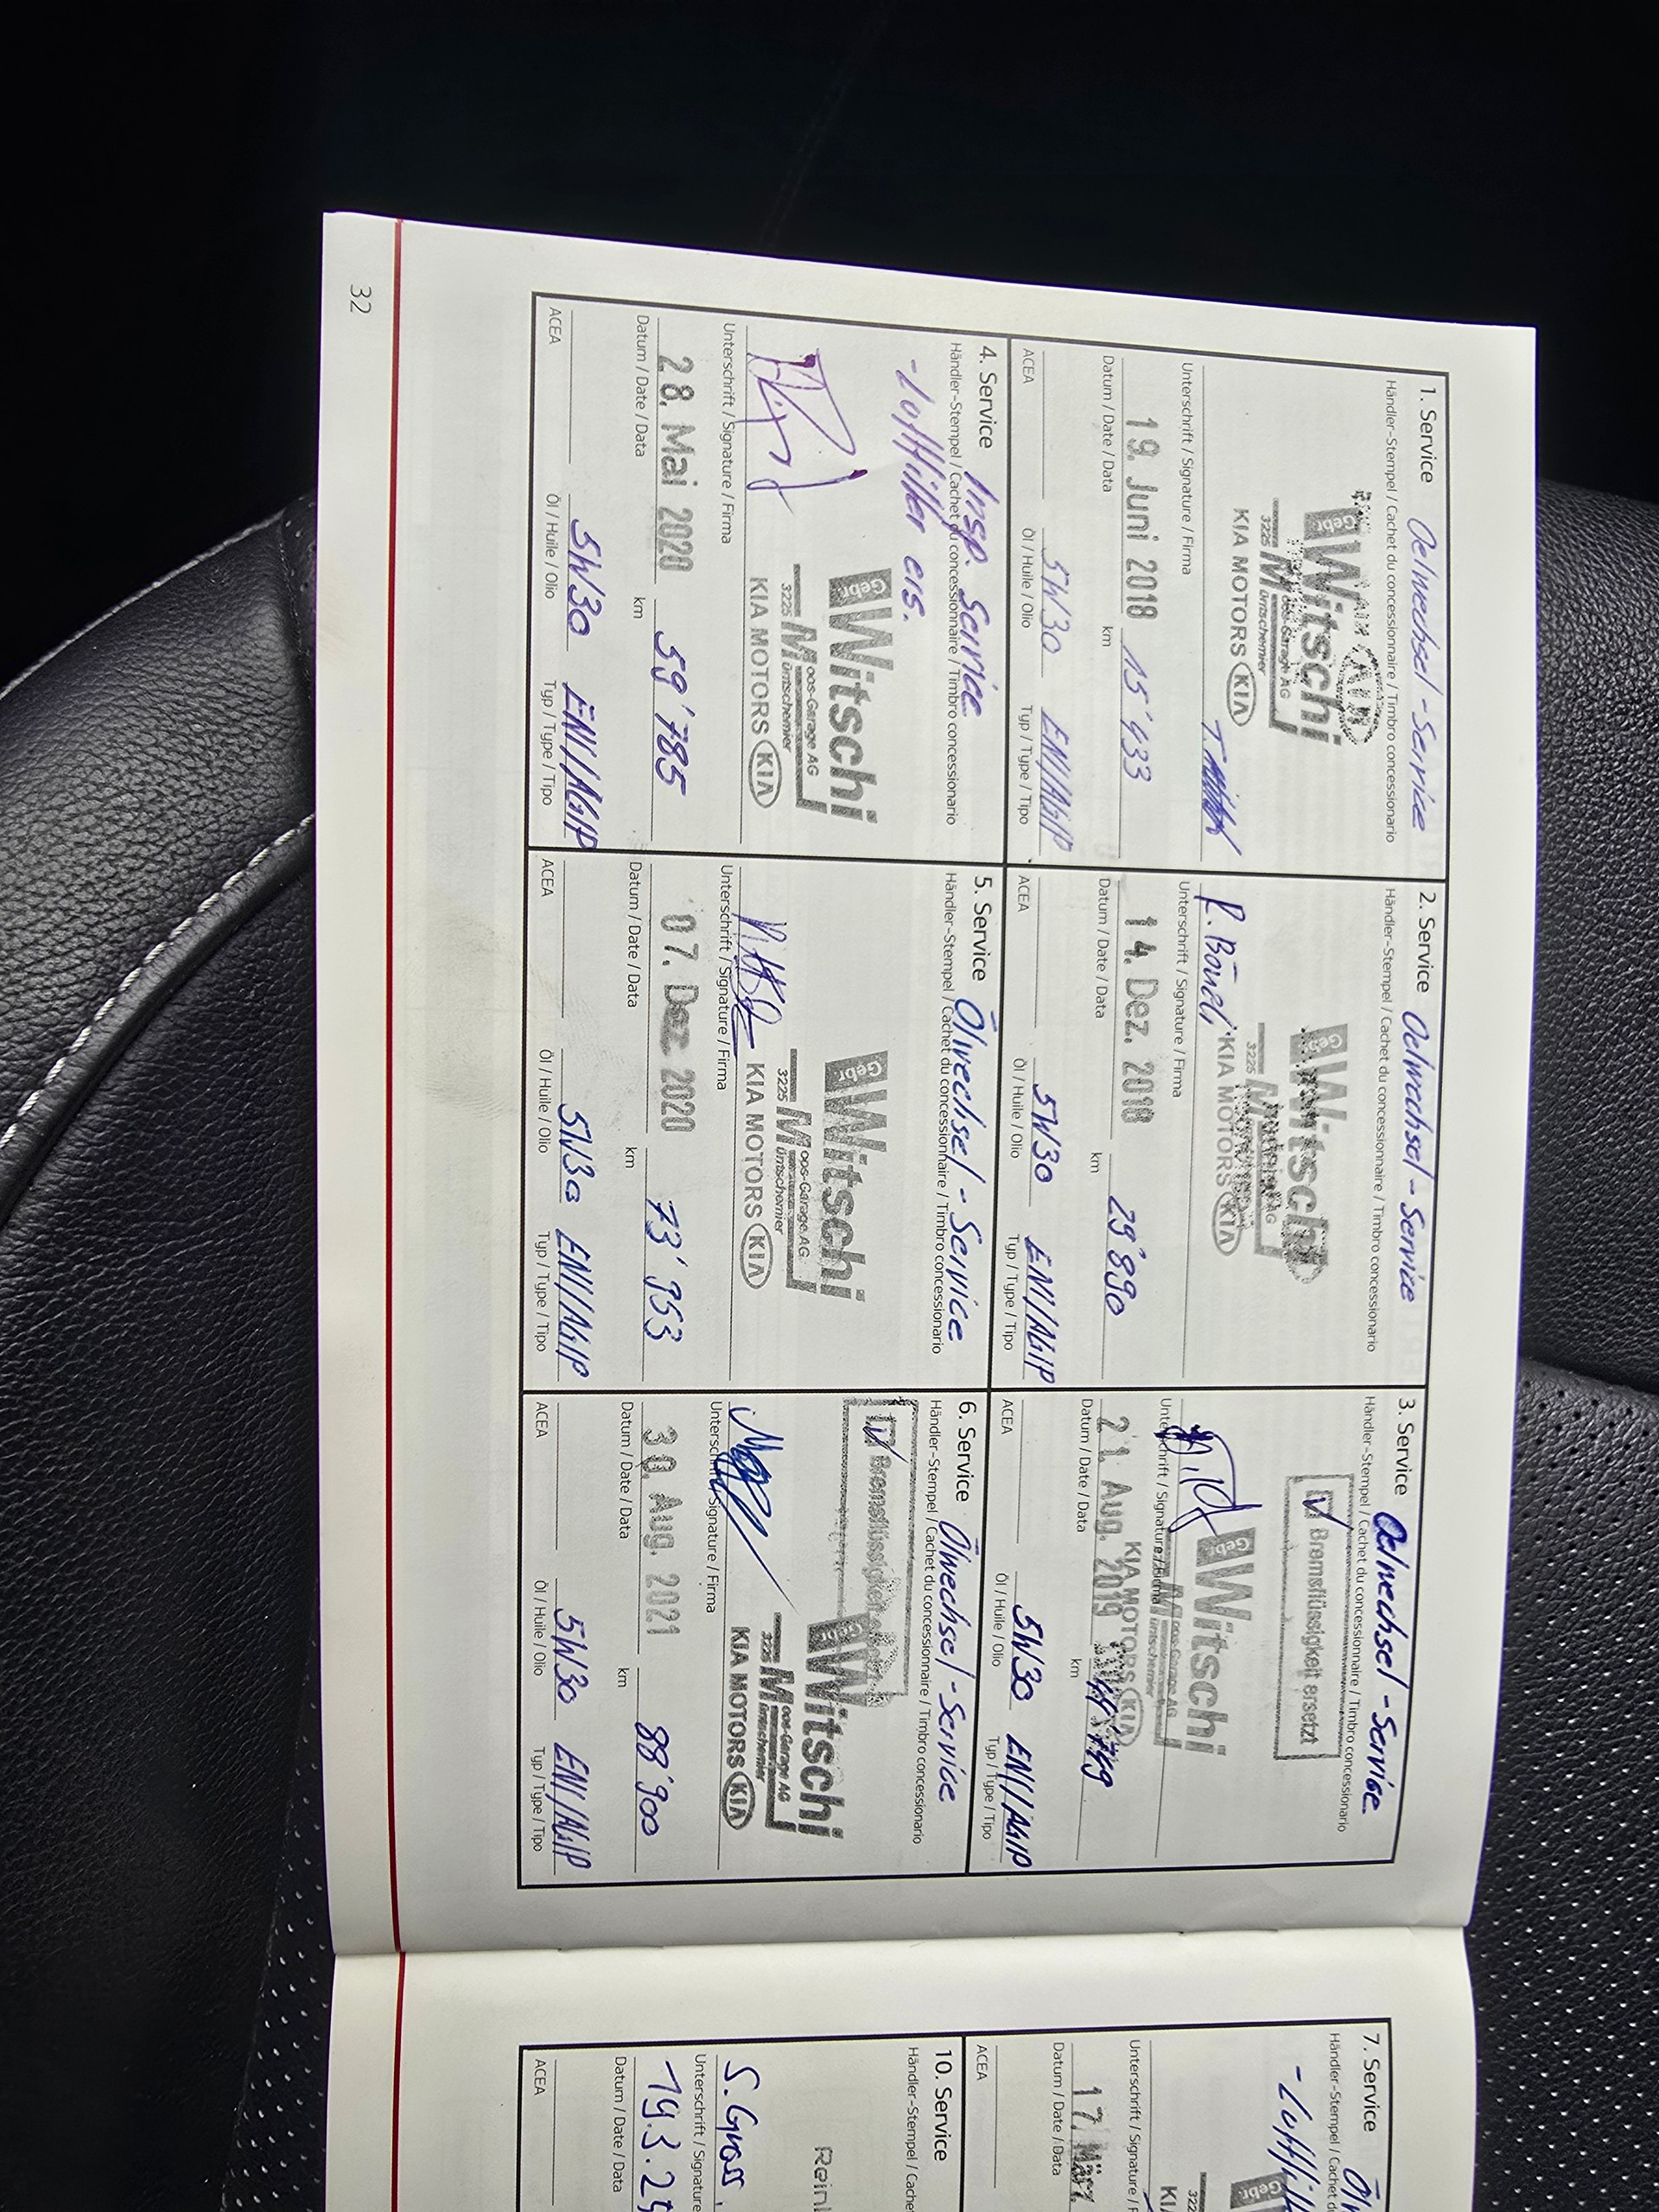 1. Service Oelwechsel-Service
Händler-Stempel / Cachet du concessionnaire / Timbro concessionario
Gebr. Witschi
Moos-Garage AG
3225 Müntschemier
KIA MOTORS KIA
Unterschrift / Signature / Firma
19. Juni 2018 15'433
Datum / Date / Data km
5W30 ENI/AGIP
ACEA Öl / Huile / Olio Typ / Type / Tipo
2. Service Oelwechsel-Service
Händler-Stempel / Cachet du concessionnaire / Timbro concessionario
Gebr. Witschi
3225
KIA MOTORS KIA
Unterschrift / Signature / Firma
14. Dez. 2018 29'890
Datum / Date / Data km
5W30 ENI/AGIP
ACEA Öl / Huile / Olio Typ / Type / Tipo
3. Service Oelwechsel-Service
Händler-Stempel / Cachet du concessionnaire / Timbro concessionario
Bremsflüssigkeit ersetzt
Gebr. Witschi
Moos-Garage AG
Müntschemier
KIA MOTORS KIA
Unterschrift / Signature / Firma
21. Aug. 2019
Datum / Date / Data km
5W30 ENI/AGIP
ACEA Öl / Huile / Olio Typ / Type / Tipo
4. Service Insp. Service
Händler-Stempel / Cachet du concessionnaire / Timbro concessionario
- Luftfilter ers.
Gebr. Witschi
Moos-Garage AG
3225 Müntschemier
KIA MOTORS KIA
Unterschrift / Signature / Firma
28. Mai 2020 59'785
Datum / Date / Data km
5W30 ENI/AGIP
ACEA Öl / Huile / Olio Typ / Type / Tipo
5. Service Ölwechsel-Service
Händler-Stempel / Cachet du concessionnaire / Timbro concessionario
Gebr. Witschi
Moos-Garage AG
3225 Müntschemier
KIA MOTORS KIA
Unterschrift / Signature / Firma
07. Dez 2020 73'953
Datum / Date / Data km
5W30 ENI/AGIP
ACEA Öl / Huile / Olio Typ / Type / Tipo
6. Service Ölwechsel-Service
Händler-Stempel / Cachet du concessionnaire / Timbro concessionario
Bremsflüssigkeit
Gebr. Witschi
Moos-Garage AG
3225 Müntschemier
KIA MOTORS KIA
Unterschrift / Signature / Firma
30. Aug. 2021 88'900
Datum / Date / Data km
5W30 ENI/AGIP
ACEA Öl / Huile / Olio Typ / Type / Tipo
32
7. Service
Händler-Stempel / Cachet d
Gebr.
Unterschrift / Signature / F
17. März
Datum / Date / Data
ACEA
10. Service
Händler-Stempel / Cache
S. Gross
Unterschrift / Signature
19.3.2
Datum / Date / Data
ACEA